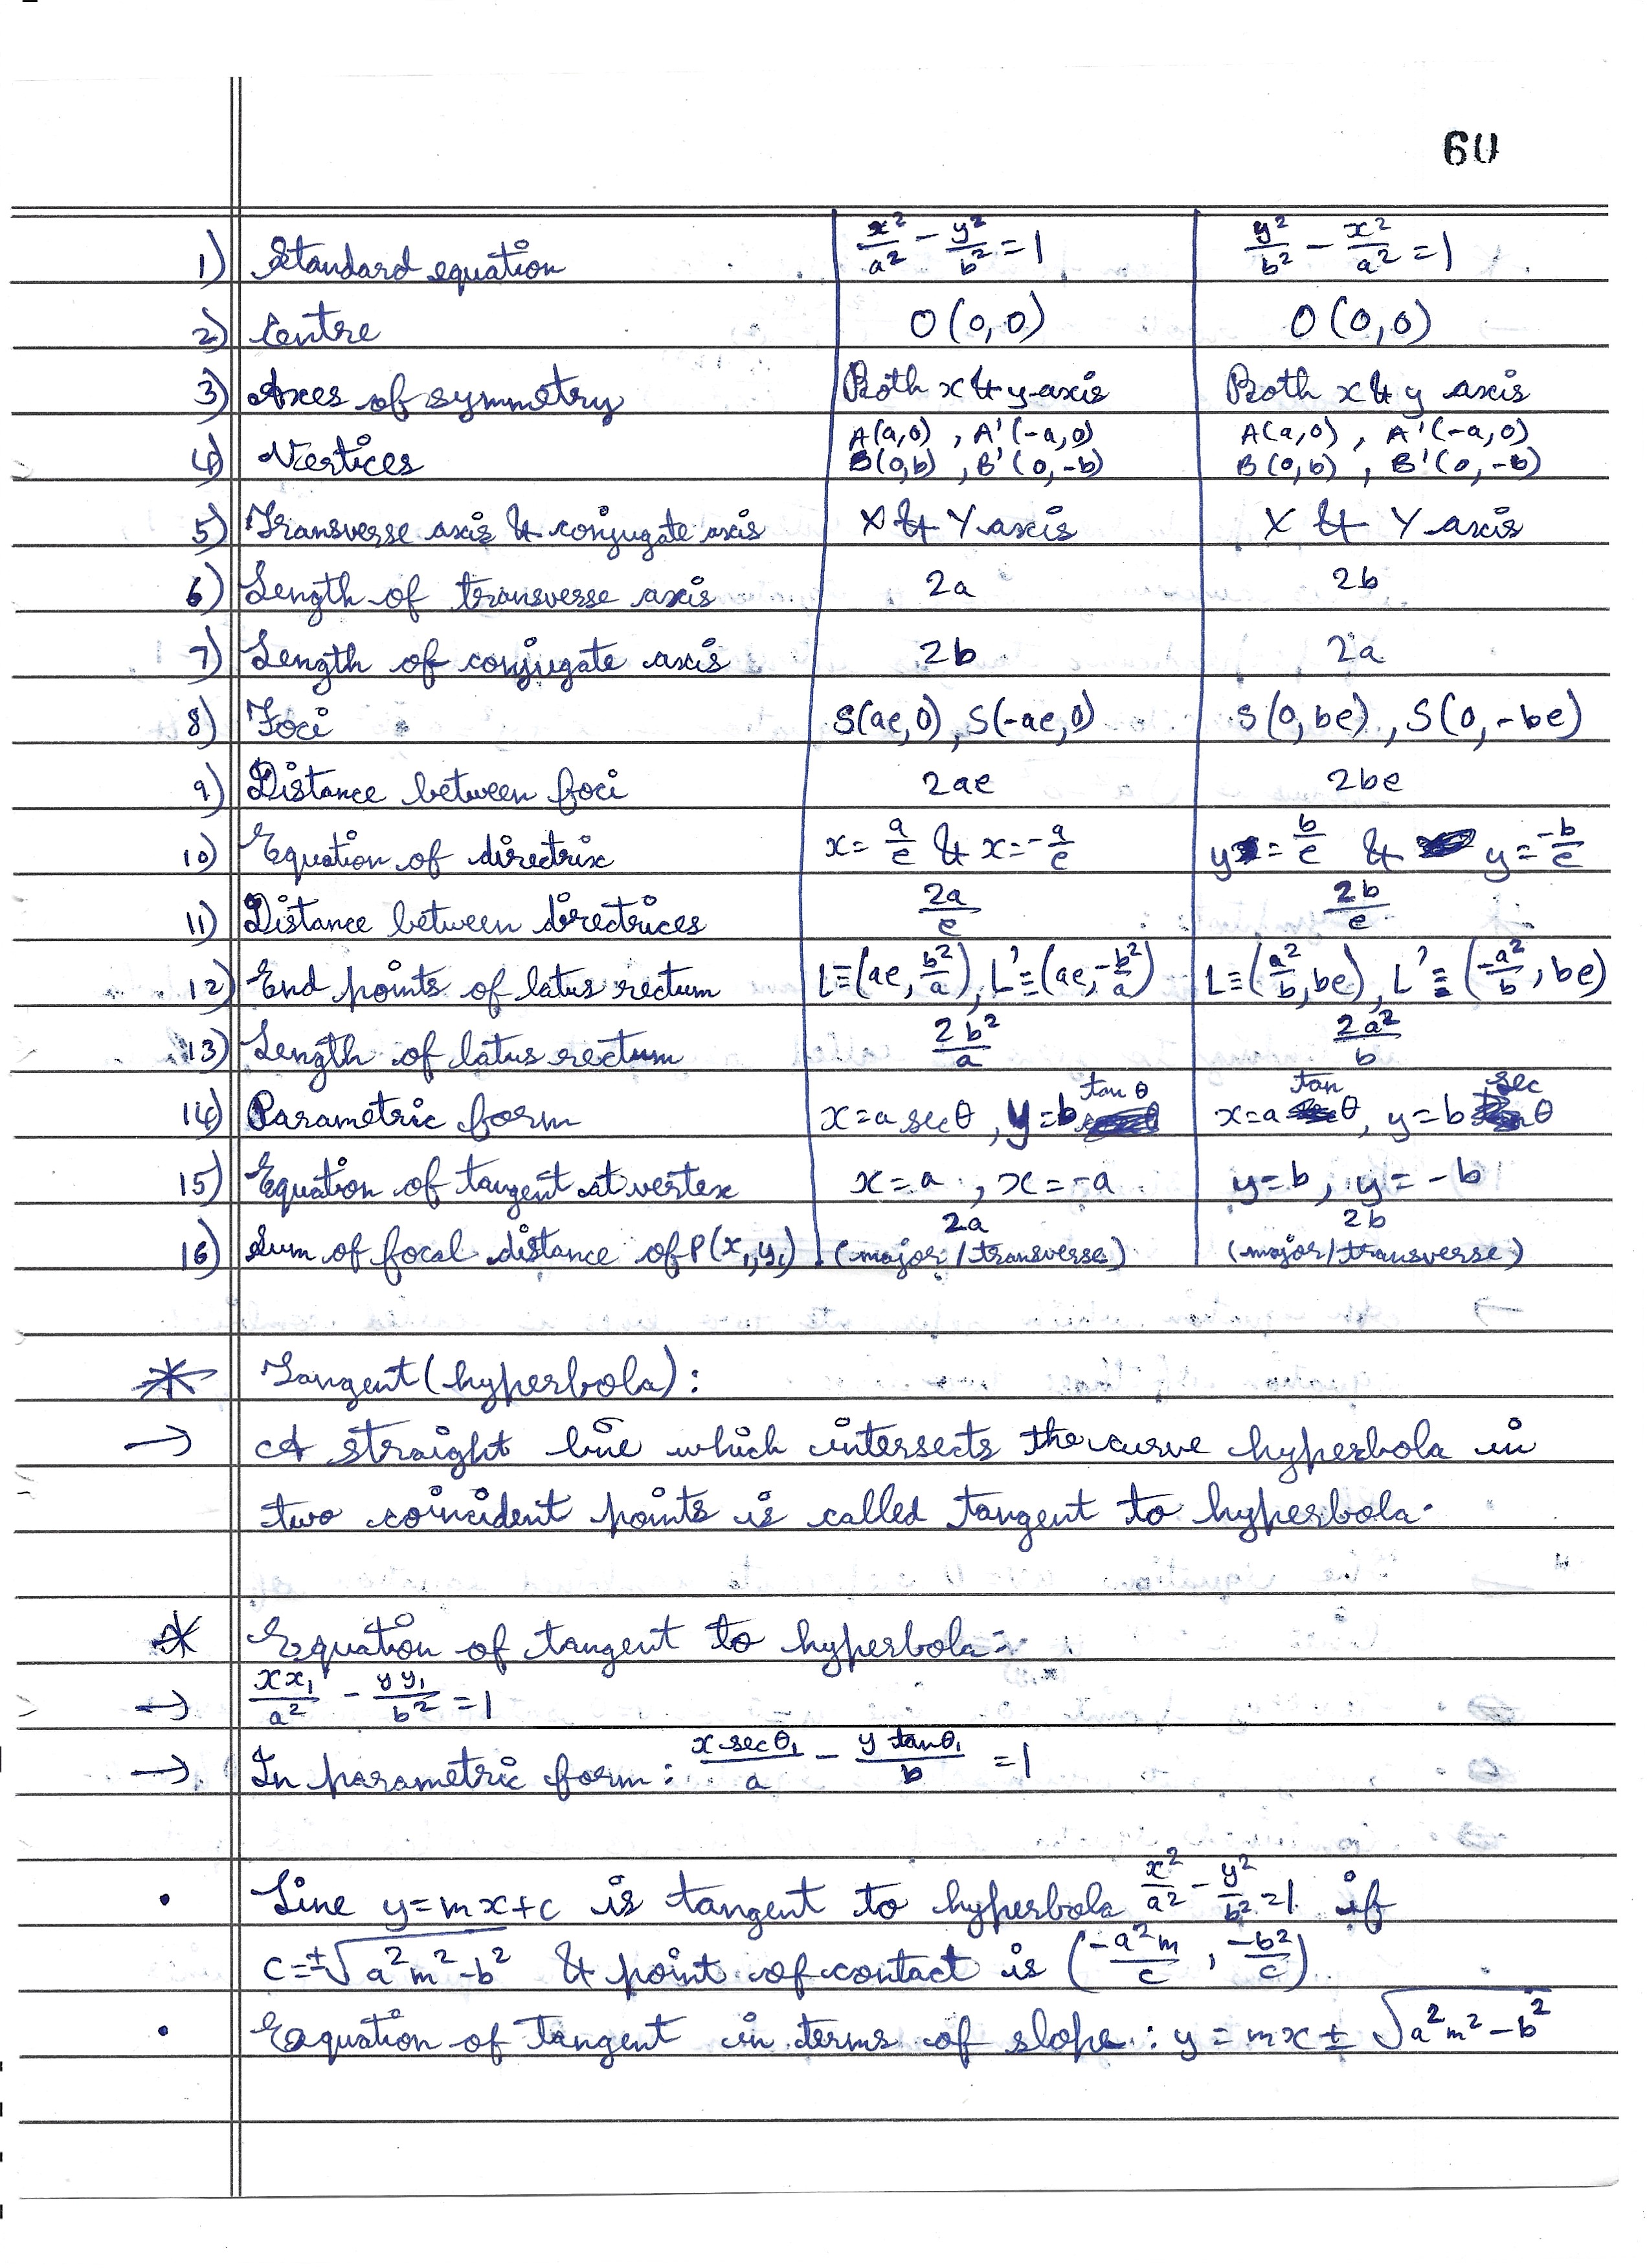 60
1) Standard equation x²/a² - y²/b² = 1 y²/b² - x²/a² = 1
2) Centre O(0,0) O(0,0)
3) Axes of symmetry Both x & y-axis Both x & y axis
4) Vertices A(a,0), A'(-a,0) B(0,b), B'(0,-b) A(a,0), A'(-a,0) B(0,b), B'(0,-b)
5) Transverse axis & conjugate axis X & Y axis X & Y axis
6) Length of transverse axis 2a 2b
7) Length of conjugate axis 2b 2a
8) Foci S(ae,0), S(-ae,0) S(0,be), S(0,-be)
9) Distance between foci 2ae 2be
10) Equation of directrix x = a/e & x = -a/e y = b/e & y = -b/e
11) Distance between directrices 2a/e 2b/e
12) End points of latus rectum L≡(ae, b²/a), L'≡(ae, -b²/a) L≡(a²/b, be), L'≡(-a²/b, be)
13) Length of latus rectum 2b²/a 2a²/b
14) Parametric form x = a secθ, y = b tanθ x = a tanθ, y = b secθ
15) Equation of tangent at vertex x = a, x = -a y = b, y = -b
16) Sum of focal distance of P(x₁,y₁) 2a (major/transverse) 2b (major/transverse)
* Tangent (hyperbola):
→ A straight line which intersects the curve hyperbola in
two coincident points is called tangent to hyperbola.
* Equation of tangent to hyperbola:
→ xx₁/a² - yy₁/b² = 1
→ In parametric form: x secθ₁/a - y tanθ₁/b = 1
• Line y = mx + c is tangent to hyperbola x²/a² - y²/b² = 1 if
c = ±√(a²m² - b²) & point of contact is (-a²m/c, -b²/c)
• Equation of tangent in terms of slope: y = mx ± √(a²m² - b²)